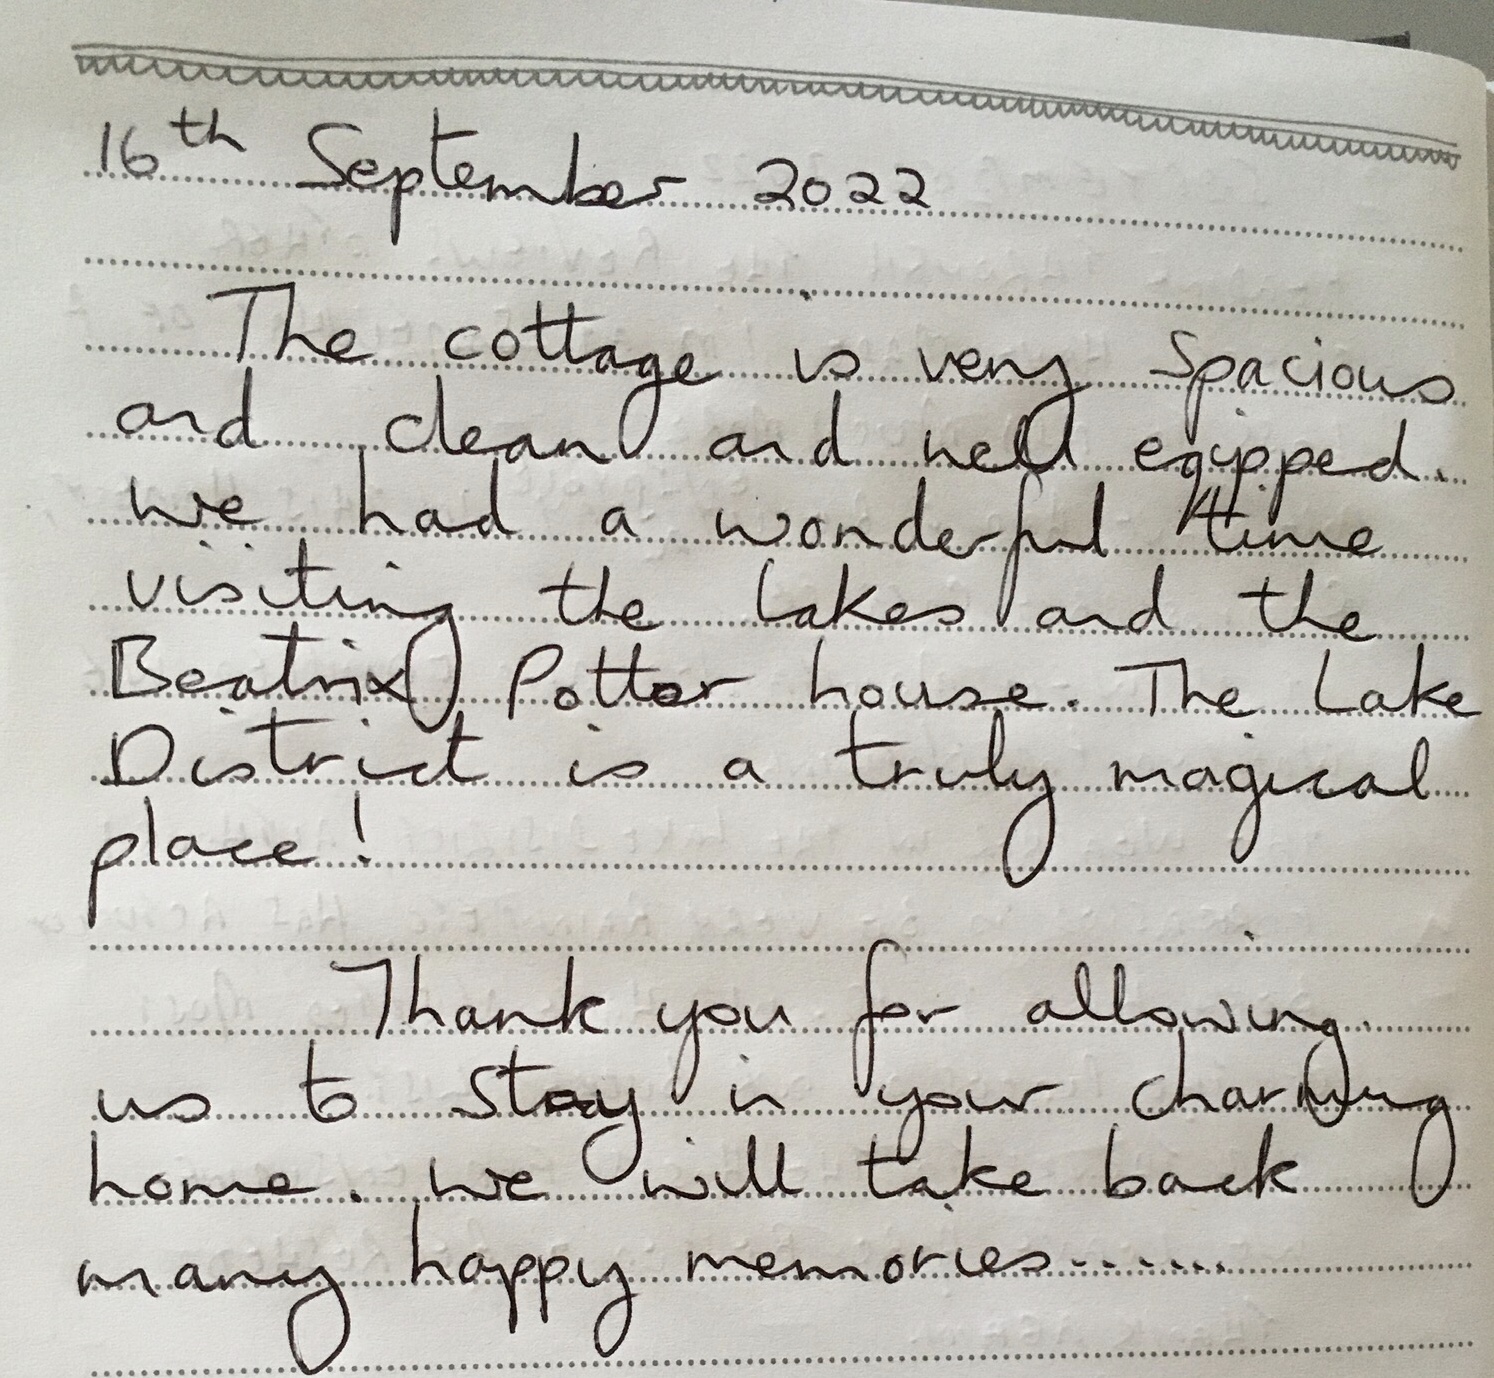 16th September 2022
The cottage is very spacious
and clean and well eqipped.
we had a wonderful time
visiting the lakes and the
Beatrix Potter house. The Lake
District is a truly magical
place!
Thank you for allowing
us to stay in your charming
home. we will take back
many happy memories.......